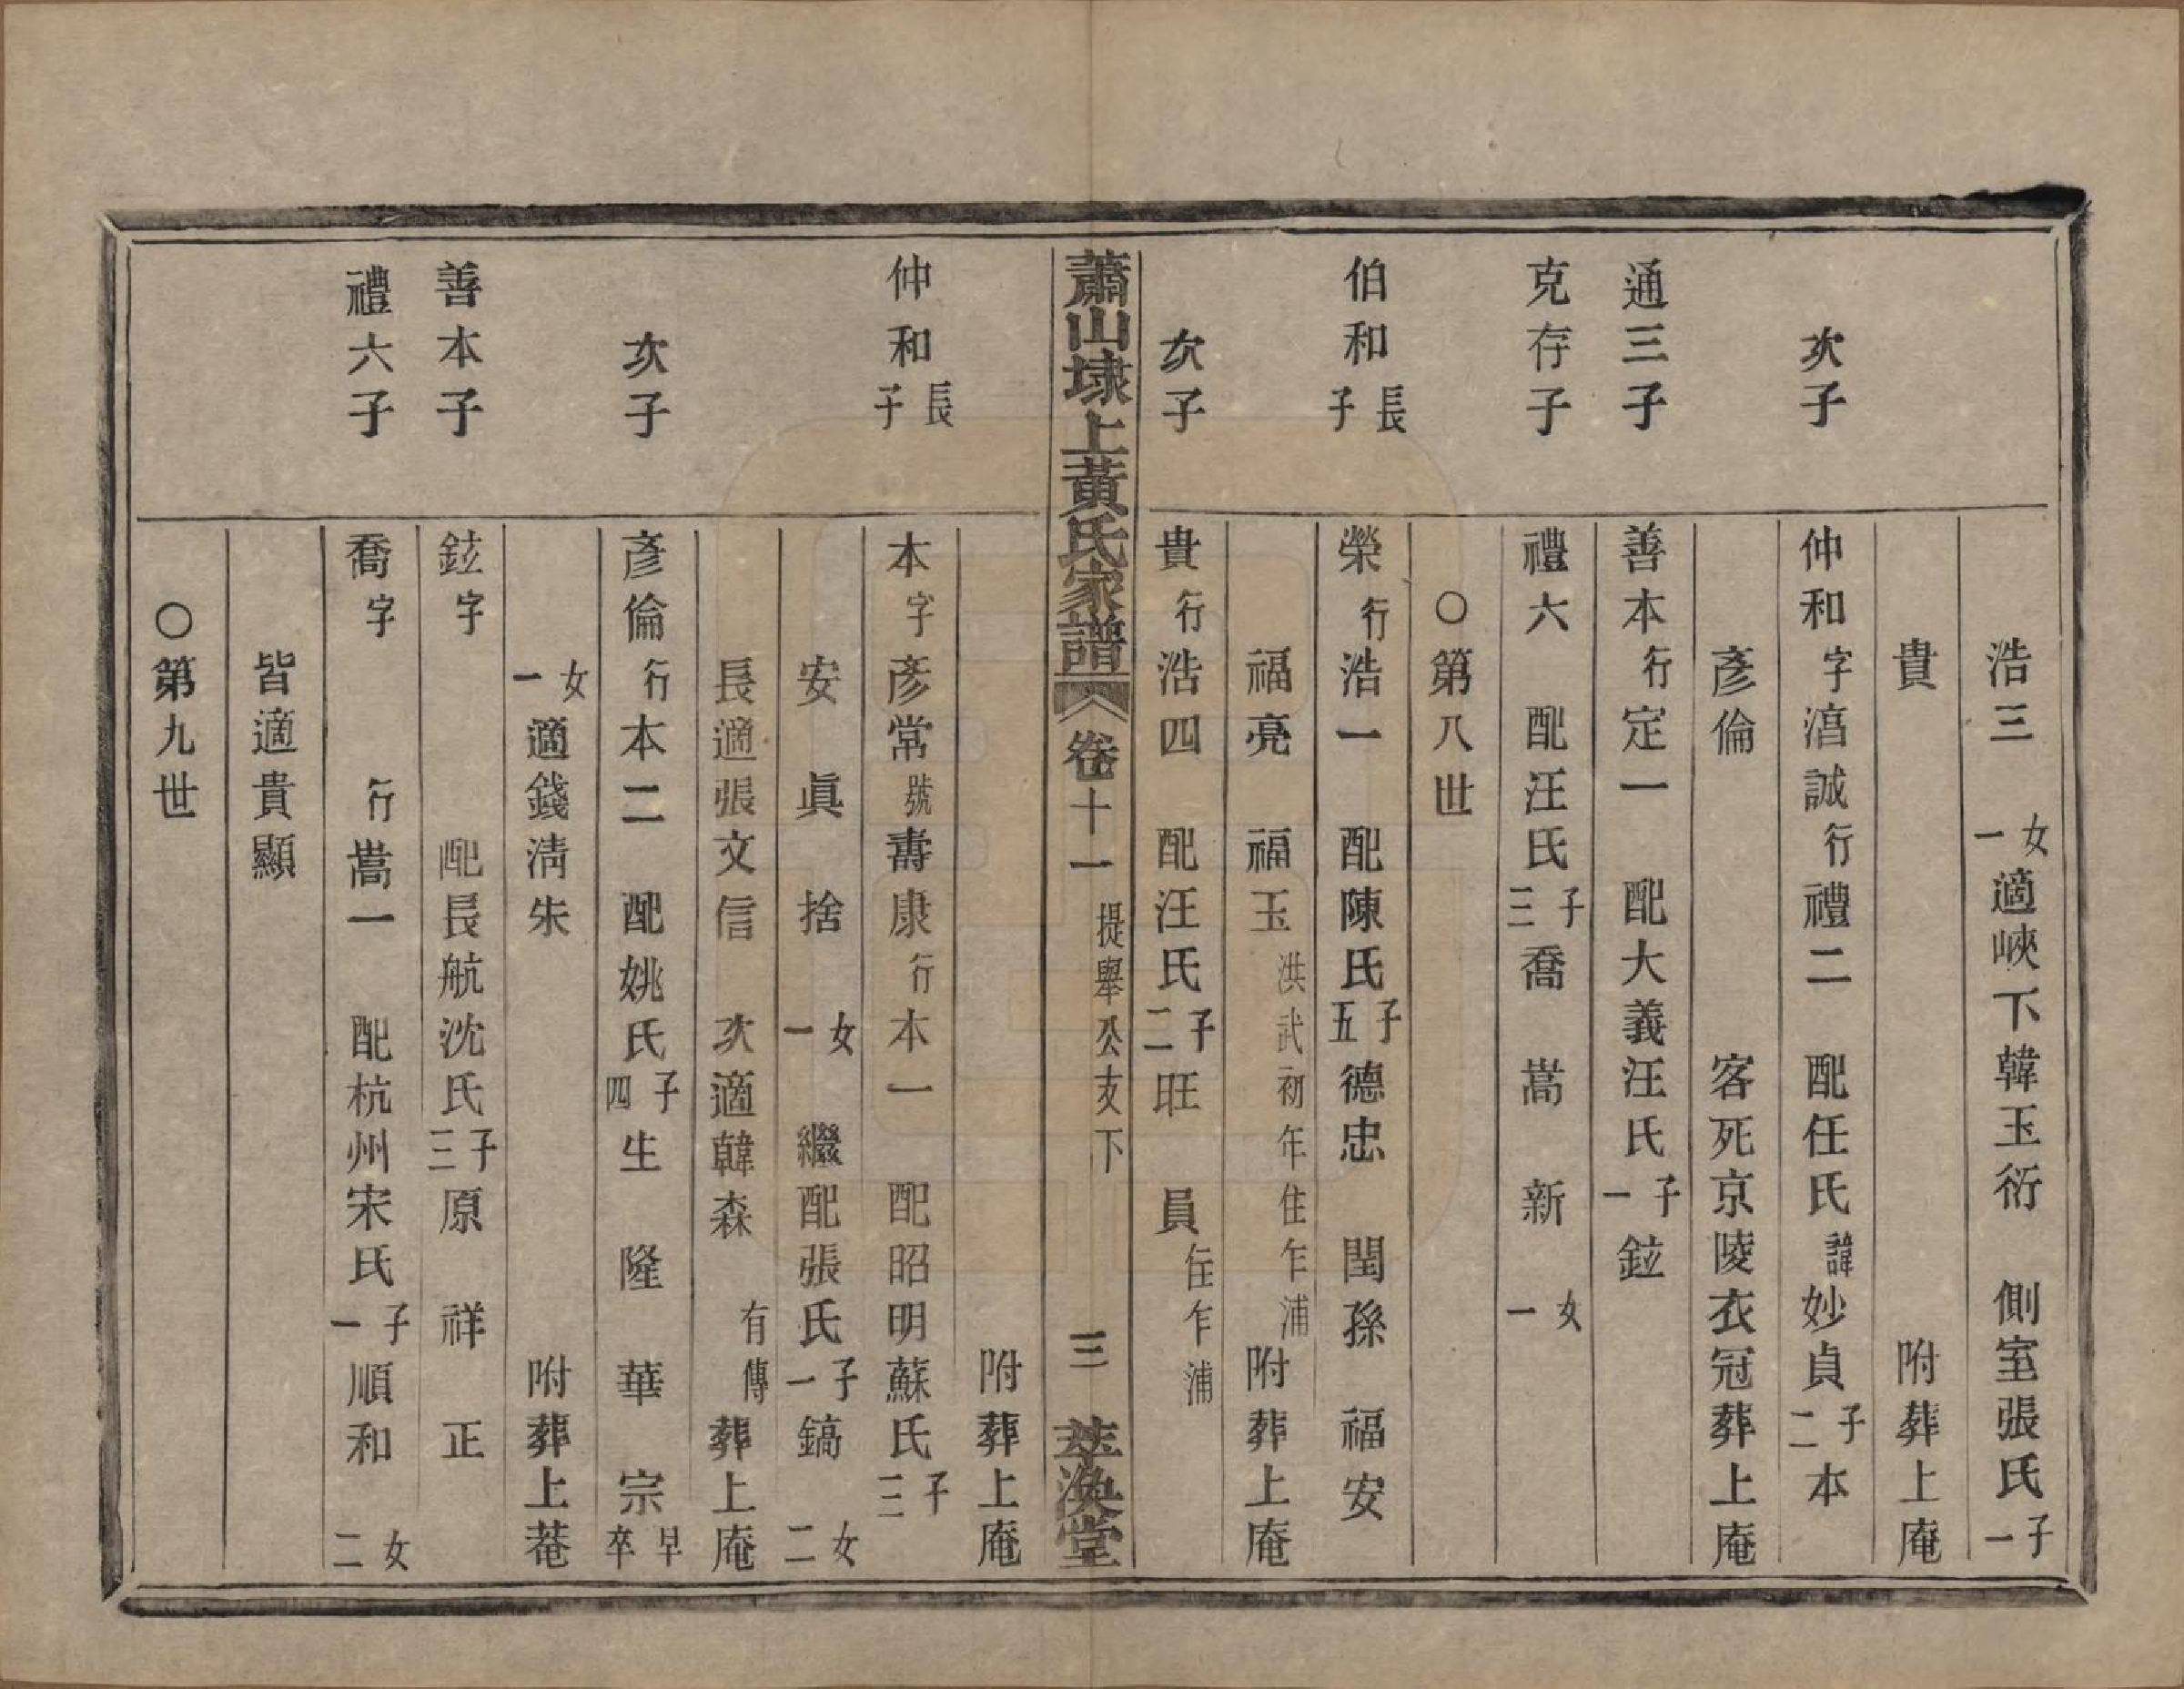 浩三 女一適峽下韓玉衍 側室張氏子一
貴 附葬上庵
次子 仲和字㴠誠行禮二 配任氏諱妙貞子二本
彥倫 客死京陵衣冠葬上庵
通三子 善本行定一 配大義汪氏子一鉉
克存子 禮六 配汪氏子三喬 嵩 新 女一
○第八世
伯和長子 榮行浩一 配陳氏子五德忠 閏孫 福安
福亮 福玉洪武初年住乍浦附葬上庵
次子 貴行浩四 配汪氏子二旺 員住乍浦
蕭山埭上黃氏家譜 卷十一 提舉公支下 三 萃渙堂
附葬上庵
仲和長子 本字彥常號壽康行本一 配昭明蘇氏子三
安 眞 捨 女一 繼配張氏子一鎬 女二
長適張文信 次適韓森 有傳葬上庵
次子 彥倫行本二 配姚氏子四生 隆 華 宗早卒
女一適錢淸朱 附葬上菴
善本子 鉉字 配長航沈氏子三原 祥 正
禮六子 喬字 行嵩一 配杭州宋氏子一順和 女二
皆適貴顯
○第九世